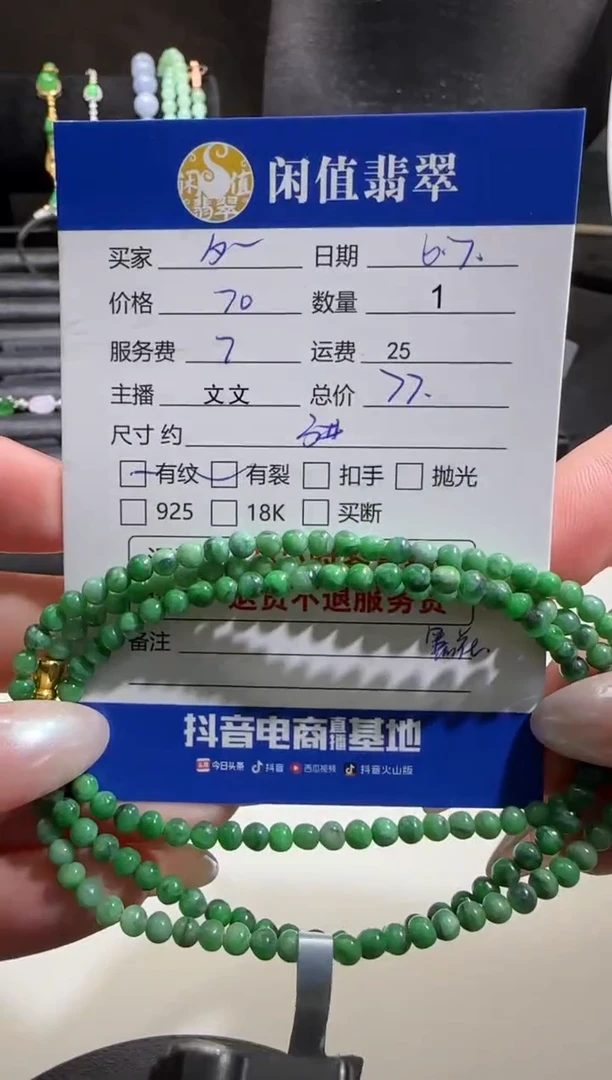 闲值翡翠
闲值
翡翠
买家 日期 6.7.
价格 70 数量 1
服务费 7 运费 25
主播 文文 总价 77.
尺寸 约 3#
有纹 有裂 扣手 抛光
925 18K 买断
退货不退服务费
备注
抖音电商直播基地
今日头条 抖音 西瓜视频 抖音火山版